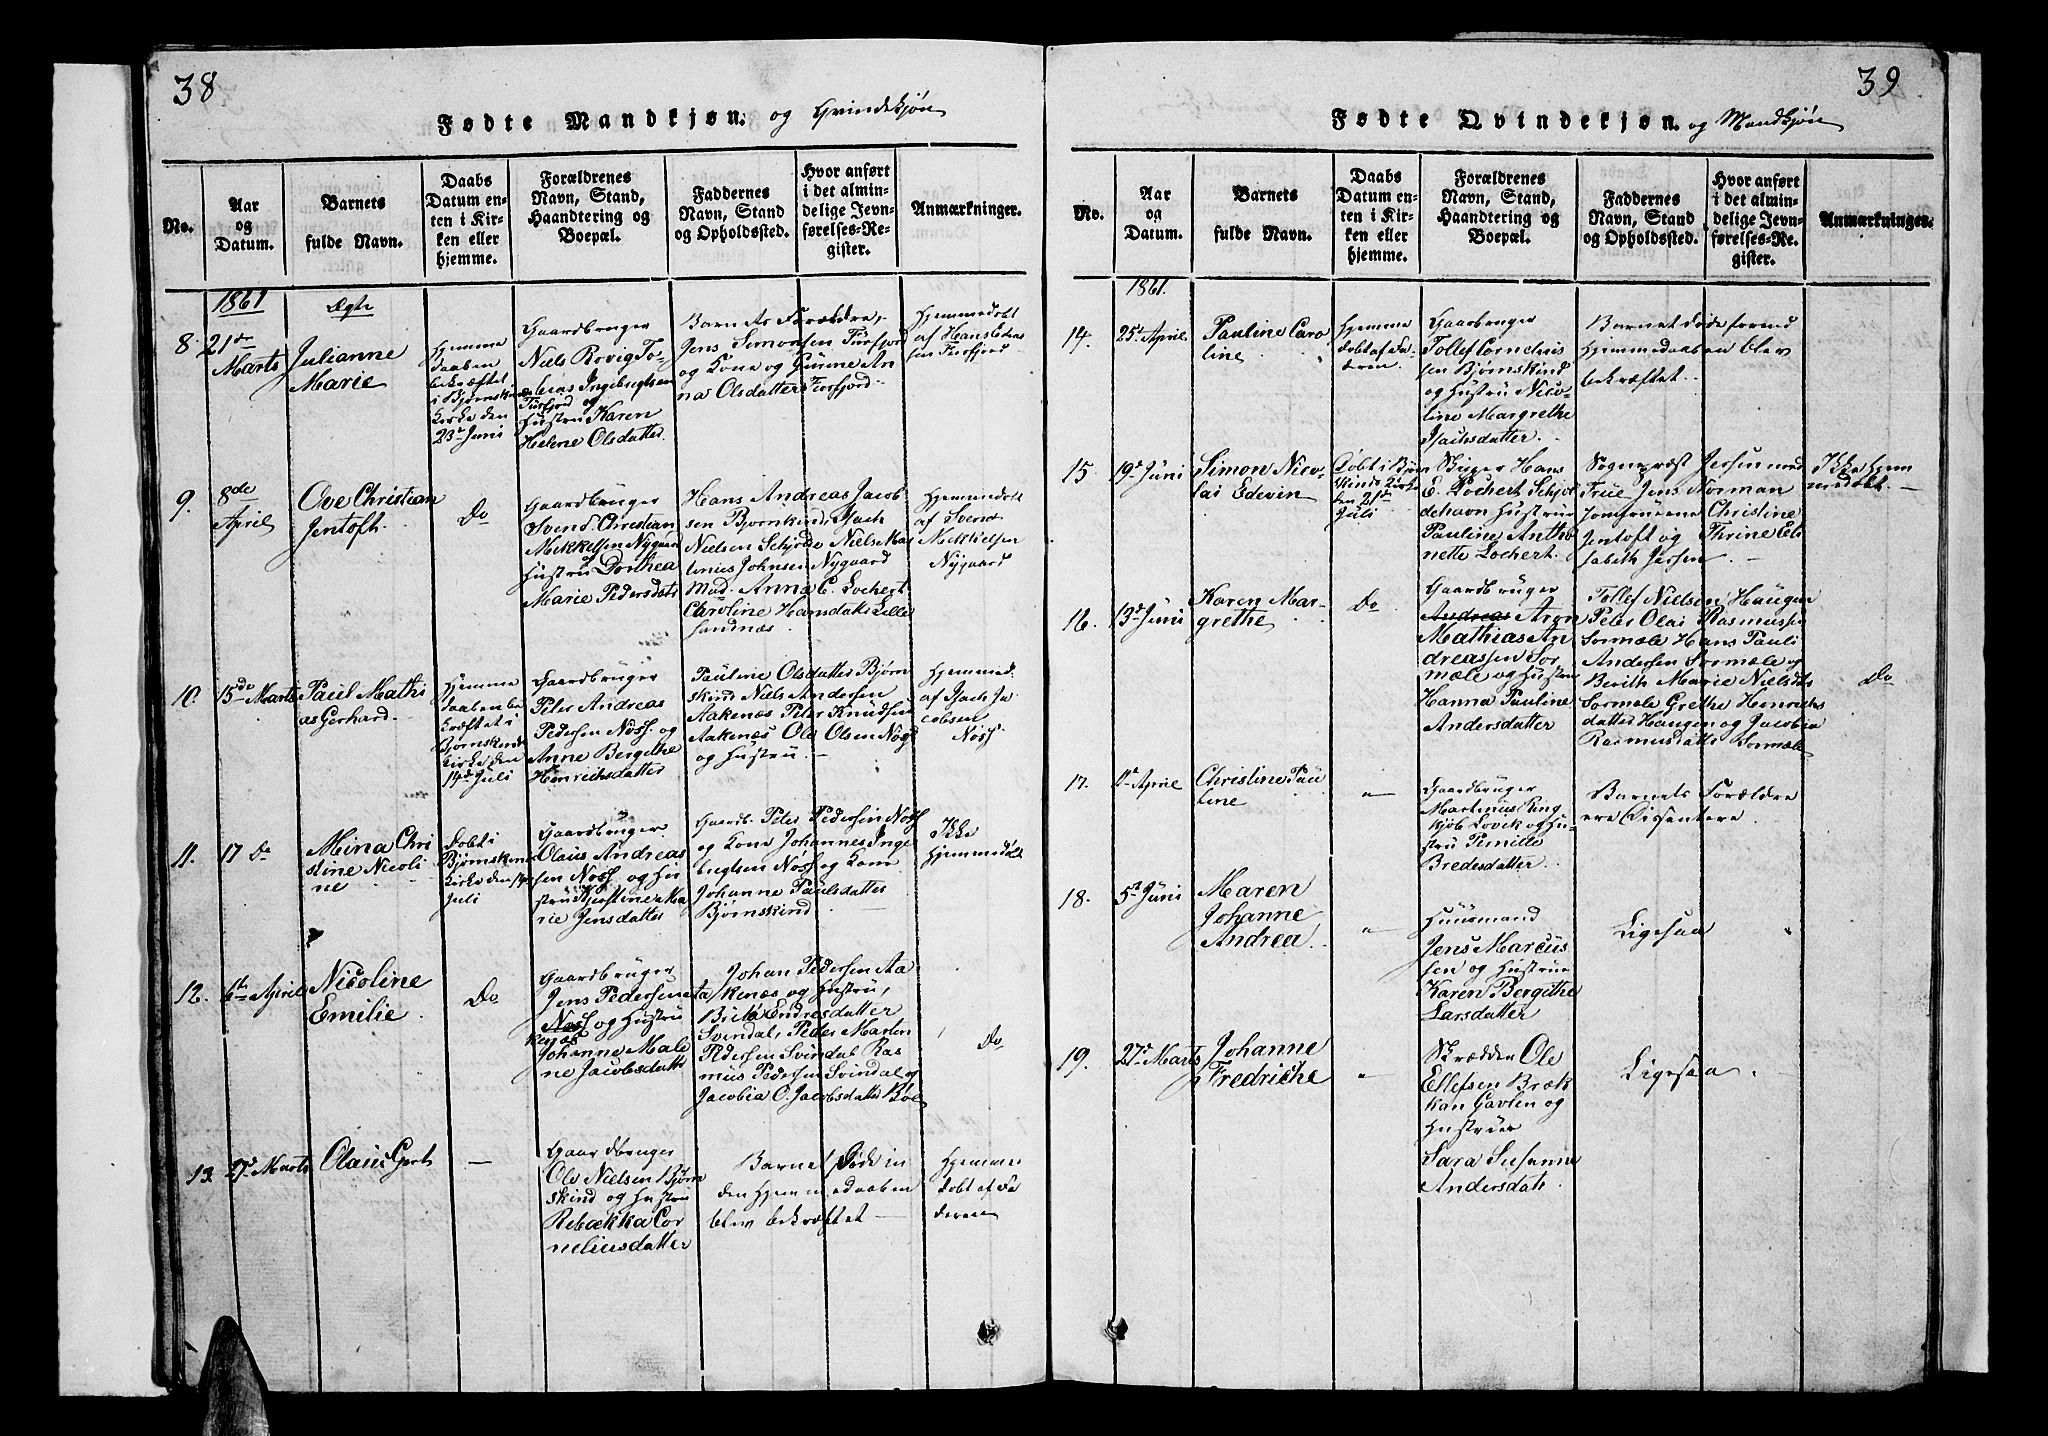 38
Fødte Mandkjøn. og Qvindekjøn
No.
Aar
og
Datum.
Barnets
fulde Navn.
Daabs
Datum en-
ten i Kir-
ken eller
hjemme.
Forældrenes
Navn, Stand,
Haandtering og
Boepæl.
Faddernes
Navn, Stand
og Opholdssted.
Hvor anført
i det almin-
delige Jevn-
førelses-Re-
gister.
Anmærkninger.
1861
Ægte
8.
21de
Marts
Julianne
Marie
Hjemme
daaben
bekræftet
i Bjørnskinds
Kirke den
23de Juni
Gaardbruger
Niels Rovig To-
bias Ingebrigtsen
Forfjord og
Hustru Karen
Helene Olsdatter.
Barnets Forældre,
Jens Simonsen Forfjord
og Kone og Gurine An
na Olsdatter Forfjord.
Hjemmedøbt
af Hans
Forfjord
9.
8de
April
Ove Christian
Jentoft.
Do
Gaardbruger
Svend Christian
Mikkelsen Nygaard
Hustru Dorthea
Marie Pedersdatr
Hans Andreas Jacob
sen Bjørnskind, Isach
Nielsen Schjorde Niels Mar
tinius Johnsen Nygaard
Mad. Anna E. Lochert
Caroline Hansdatr Lille
sandnæs
Hjemmedøbt
af Svend
Mikkelsen
Nygaard
10.
15de Marts
Paul Mathi
as Gerhard.
Hjemme
daaben be
kræftet i
Bjørnskinds
Kirke den
14de Juli
Gaardbruger
Peter Andreas
Pedersen Nøss og
Anne Bergithe
Henrichsdatter
Pauline Olsdatter Bjørn
skind Niels Andersen
Aakenæs Peter Knudsen
Aakenæs Ole Olsen Nøss
og Hustru.
Hjemmed.
af Isach Ja
cobsen
Nøss.
11.
17 Do
Mina Chri
stine Nicoli
ne
Døbt i
Bjørnskinds
Kirke den 14de
Juli
Gaardbruger
Olaus Andreas
sen Nøss og Hu
stru Kjerstine Ma
rie Jensdatter
Gaardb. Peter Pedersen Nøss
og Kone Johannes Inge
brigtsen Nøss og Kone
Johanne Paulsdatter
Bjørnskind
Ikke
hjemmedøbt
12.
6te April
Nicoline
Emilie.
Do
Gaardbruger
Jens Pedersen Aa
Nøss og Hustru
kenæs
Johanne Male
ne Jacobsdatter
Johan Pedersen Aa
kenæs og Hustru,
Brita Endresdatter
Svindal, Peder Marten
Pedersen Svindal Ras
mus Pedersen Svindal og
Jacobia O. Jacobsdatter Bøe
Do
13.
27de Marts
Olaus Gert
—
Gaardbruger
Ole Nielsen Bjørn
skind og Hustru
Rebækka Cor
neliusdatter
Barnet døde in
den Hjemmedaaben
blev bekræftet —
Hjemme
døbt af Fa
deren
39
Fødte Qvindekjøn. og Mandkjøn
No.
Aar
og
Datum.
Barnets
fulde Navn.
Daabs
Datum en-
ten i Kir-
ken eller
hjemme.
Forældrenes
Navn, Stand,
Haandtering og
Boepæl.
Faddernes
Navn, Stand
og Opholdssted.
Hvor anført
i det almin-
delige Jevn-
førelses-Re-
gister.
Anmærkninger.
1861.
14.
25de April
Pauline Caro
line
Hjemme
døbt af Fa
deren.
Gaardbruger
Tollef Cornelius
sen Bjørnskind
og Hustru Nico-
line Margrethe
Isachsdatter.
Barnet døde forend
Hjemmedaaben blev
bekræftet.
15.
19de Juni
Simon Nico-
lai Edevin
Døbt i Bjørn
skinds Kirke
den 21de
Juli
Skriver Hans
E. Lochert Schjor
dehavn Hustrue
Pauline Antho
nette Lochert.
Sognepræst Jersin med
Frue Jens Norman
Jomfruerne Christine
Jentoft og Thrine Eli
sabeth Jersen —
Ikke hjem
medøbt. —
16.
13de Juni
Karen Mar-
grethe
Do
Gaardbruger
Andreas Aron
Mathias An
dreassen Sor
mæle og Hustru
Hanna Pauline
Andersdatter
Tollef Nielsen Haugen
Peter Olai Rasmussen
Sormæle Hans Pauli
Andersen Sormæle og
Berith Marie Nielsdtr
Sormæle Grethe Henrichs
datter Haugen og Jacobia
Rasmusdattr Sormæle
Do
17.
11te April
Christine Pau
line
"
Gaardbruger
Martinus Ring
kjøb Lovik og Hu-
stru Pernille
Bredesdatter.
Barnets Forældre
ere Dissentere.
18.
5te Juni
Maren
Johanne
Andrea.
"
Huusmand
Jens Marcus
sen og Hustrue
Karen Bergithe
Larsdatter
Ligesaa
19.
27de Marts
Johanne
Fredriche
"
Skrædder Ole
Ellefsen Bræk
kan Gavlen og
Hustrue
Sara Susanne
Andersdatr.
Ligesaa.